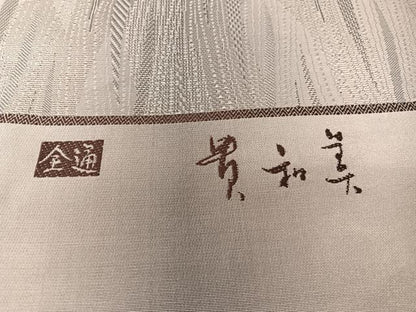 全通 貴和美